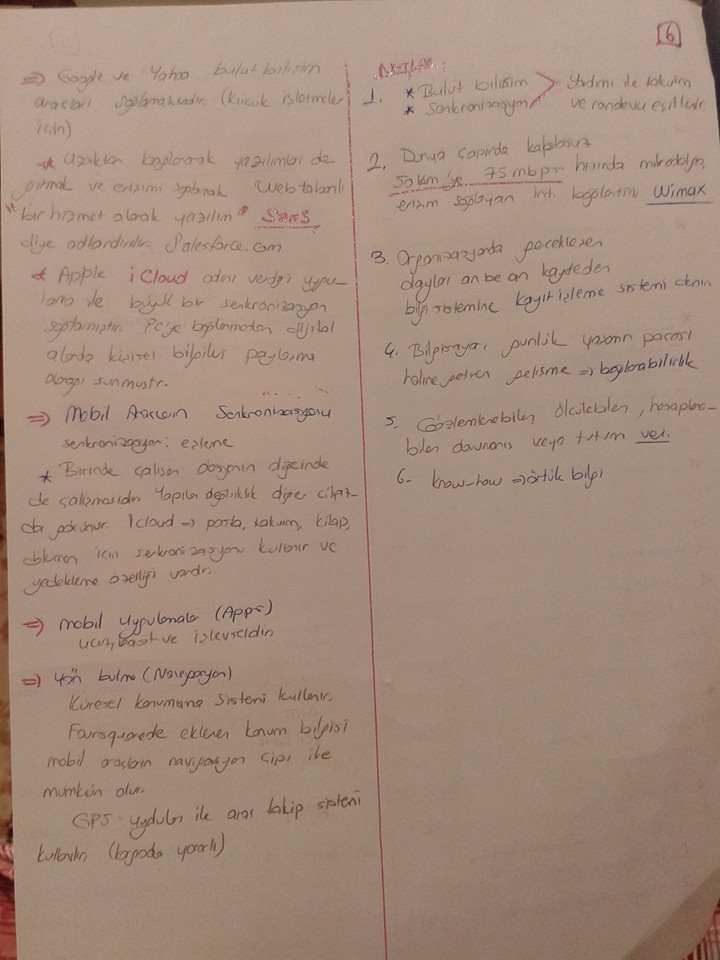 6
=> Google ve Yahoo bulut bilişim
araçları sağlamaktadır. (küçük işletmeler
için)
* Uzaktan bağlanarak yazılımlara
girmek ve erişimi sağlamak Web tabanlı
"bir hizmet olarak yazılım" SaaS
diye adlandırılır. Salesforce.com
* Apple iCloud adını verdiği uygu-
lama ile büyük bir senkronizasyon
sağlamıştır. PC'ye bağlanmadan dijital
alanda kişisel bilgiler paylaşma
olanağı sunmuştur.
=> Mobil Araçların Senkronizasyonu
senkronizasyon: eşleme
* Birinde çalışan dosyanın diğerinde
de çalışmasıdır. Yapılan değişiklik diğer cihaz-
da görünür. Icloud => posta, takvim, kitap,
döküman için senkronizasyon kullanır ve
yedekleme özelliği vardır.
=> Mobil Uygulamala (Apps)
ucuz, basit ve işlevseldir
=> Yön bulma (Navigasyon)
Küresel konumlama sistemi kullanır.
Foursquarede eklenen konum bilgisi
mobil araçların navigasyon çipi ile
mümkün olur.
GPS uyduları ile araç takip sistemi
kullanılır. (kapada yararlı)
1. * Bulut bilişim
* Senkronizasyon
Yardımı ile takvim
ve randevu eşitlenir
2. Dünya çapında kablosuz
50 km'ye 75 mbps hızında mikrodalga
erişim sağlayan int. bağlantısı Wimax
3. Organizasyonda gerçekleşen
olayları an be an kaydeden
bilgi sistemine kayıt işleme sistemi denir.
4. Bilgisayarı, günlük yaşamın parçası
haline getiren gelişme => bağlanabilirlik
5. Gözlemlenebilen, ölçülebilen, hesaplana-
bilen davranış veya tutum veri.
6- know-how => örtük bilgi